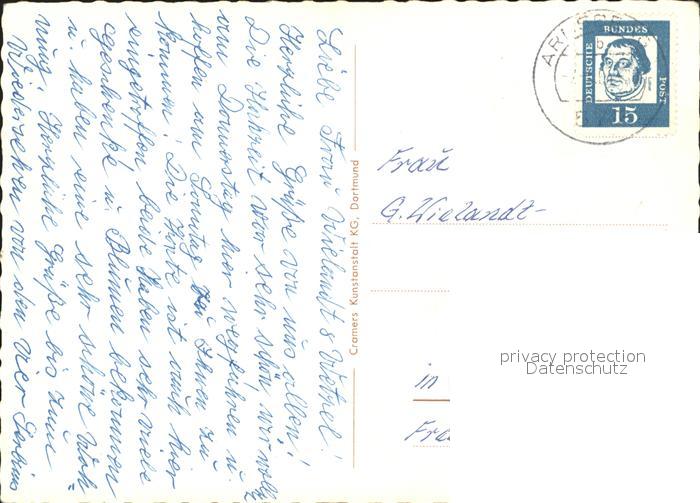 Liebe Frau Wielandt & Wetzel!
Herzliche Grüße von uns allen!
Die Fahrt war sehr schön, wir wollen
am Donnerstag hier wegfahren u.
hoffen am Sonntag bei Ihnen zu
kommen. Die Kiste ist auch hier
eingetroffen, beide haben sehr viele
Geschenke u. Blumen bekommen
u. haben eine sehr schöne Woh=
nung. Herzliche Grüße bis zum
Wiedersehen von den vier
Cramers Kunstanstalt KG, Dortmund
DEUTSCHE BUNDES POST
15
Frau
G. Wielandt-
in
privacy protection
Datenschutz